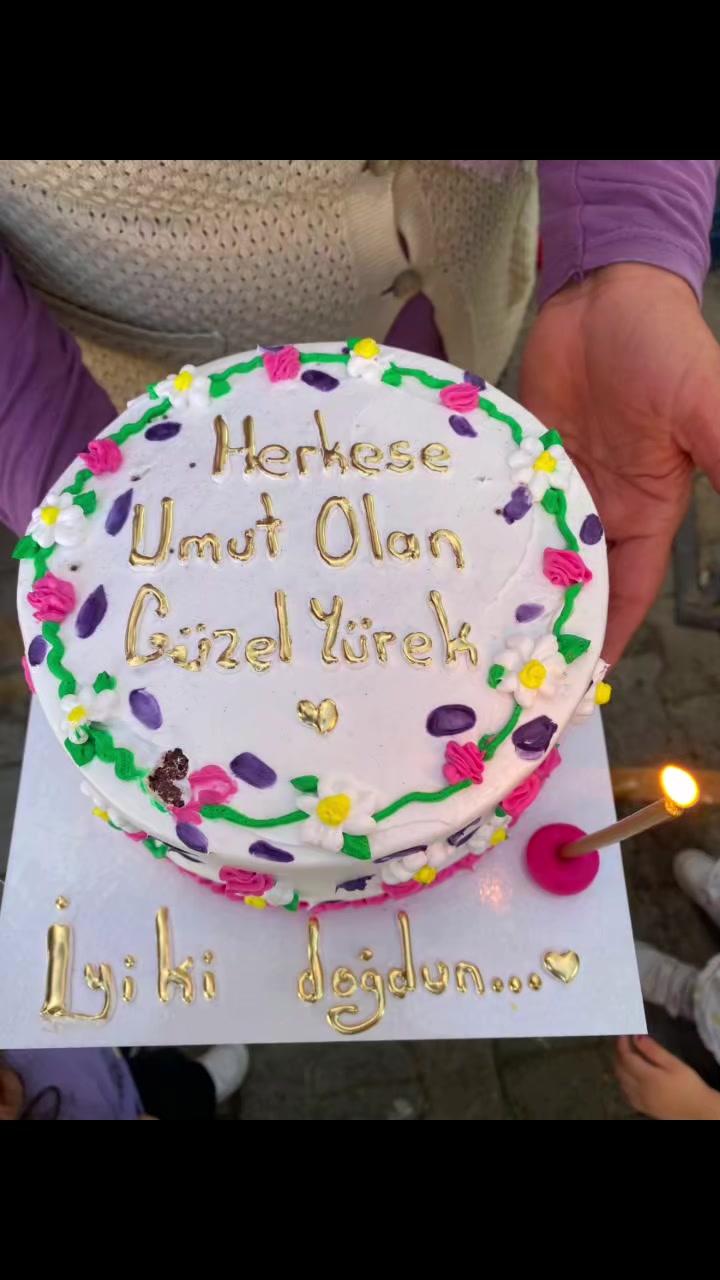 Herkese
Umut Olan
Güzel Yürek
İyi ki doğdun...